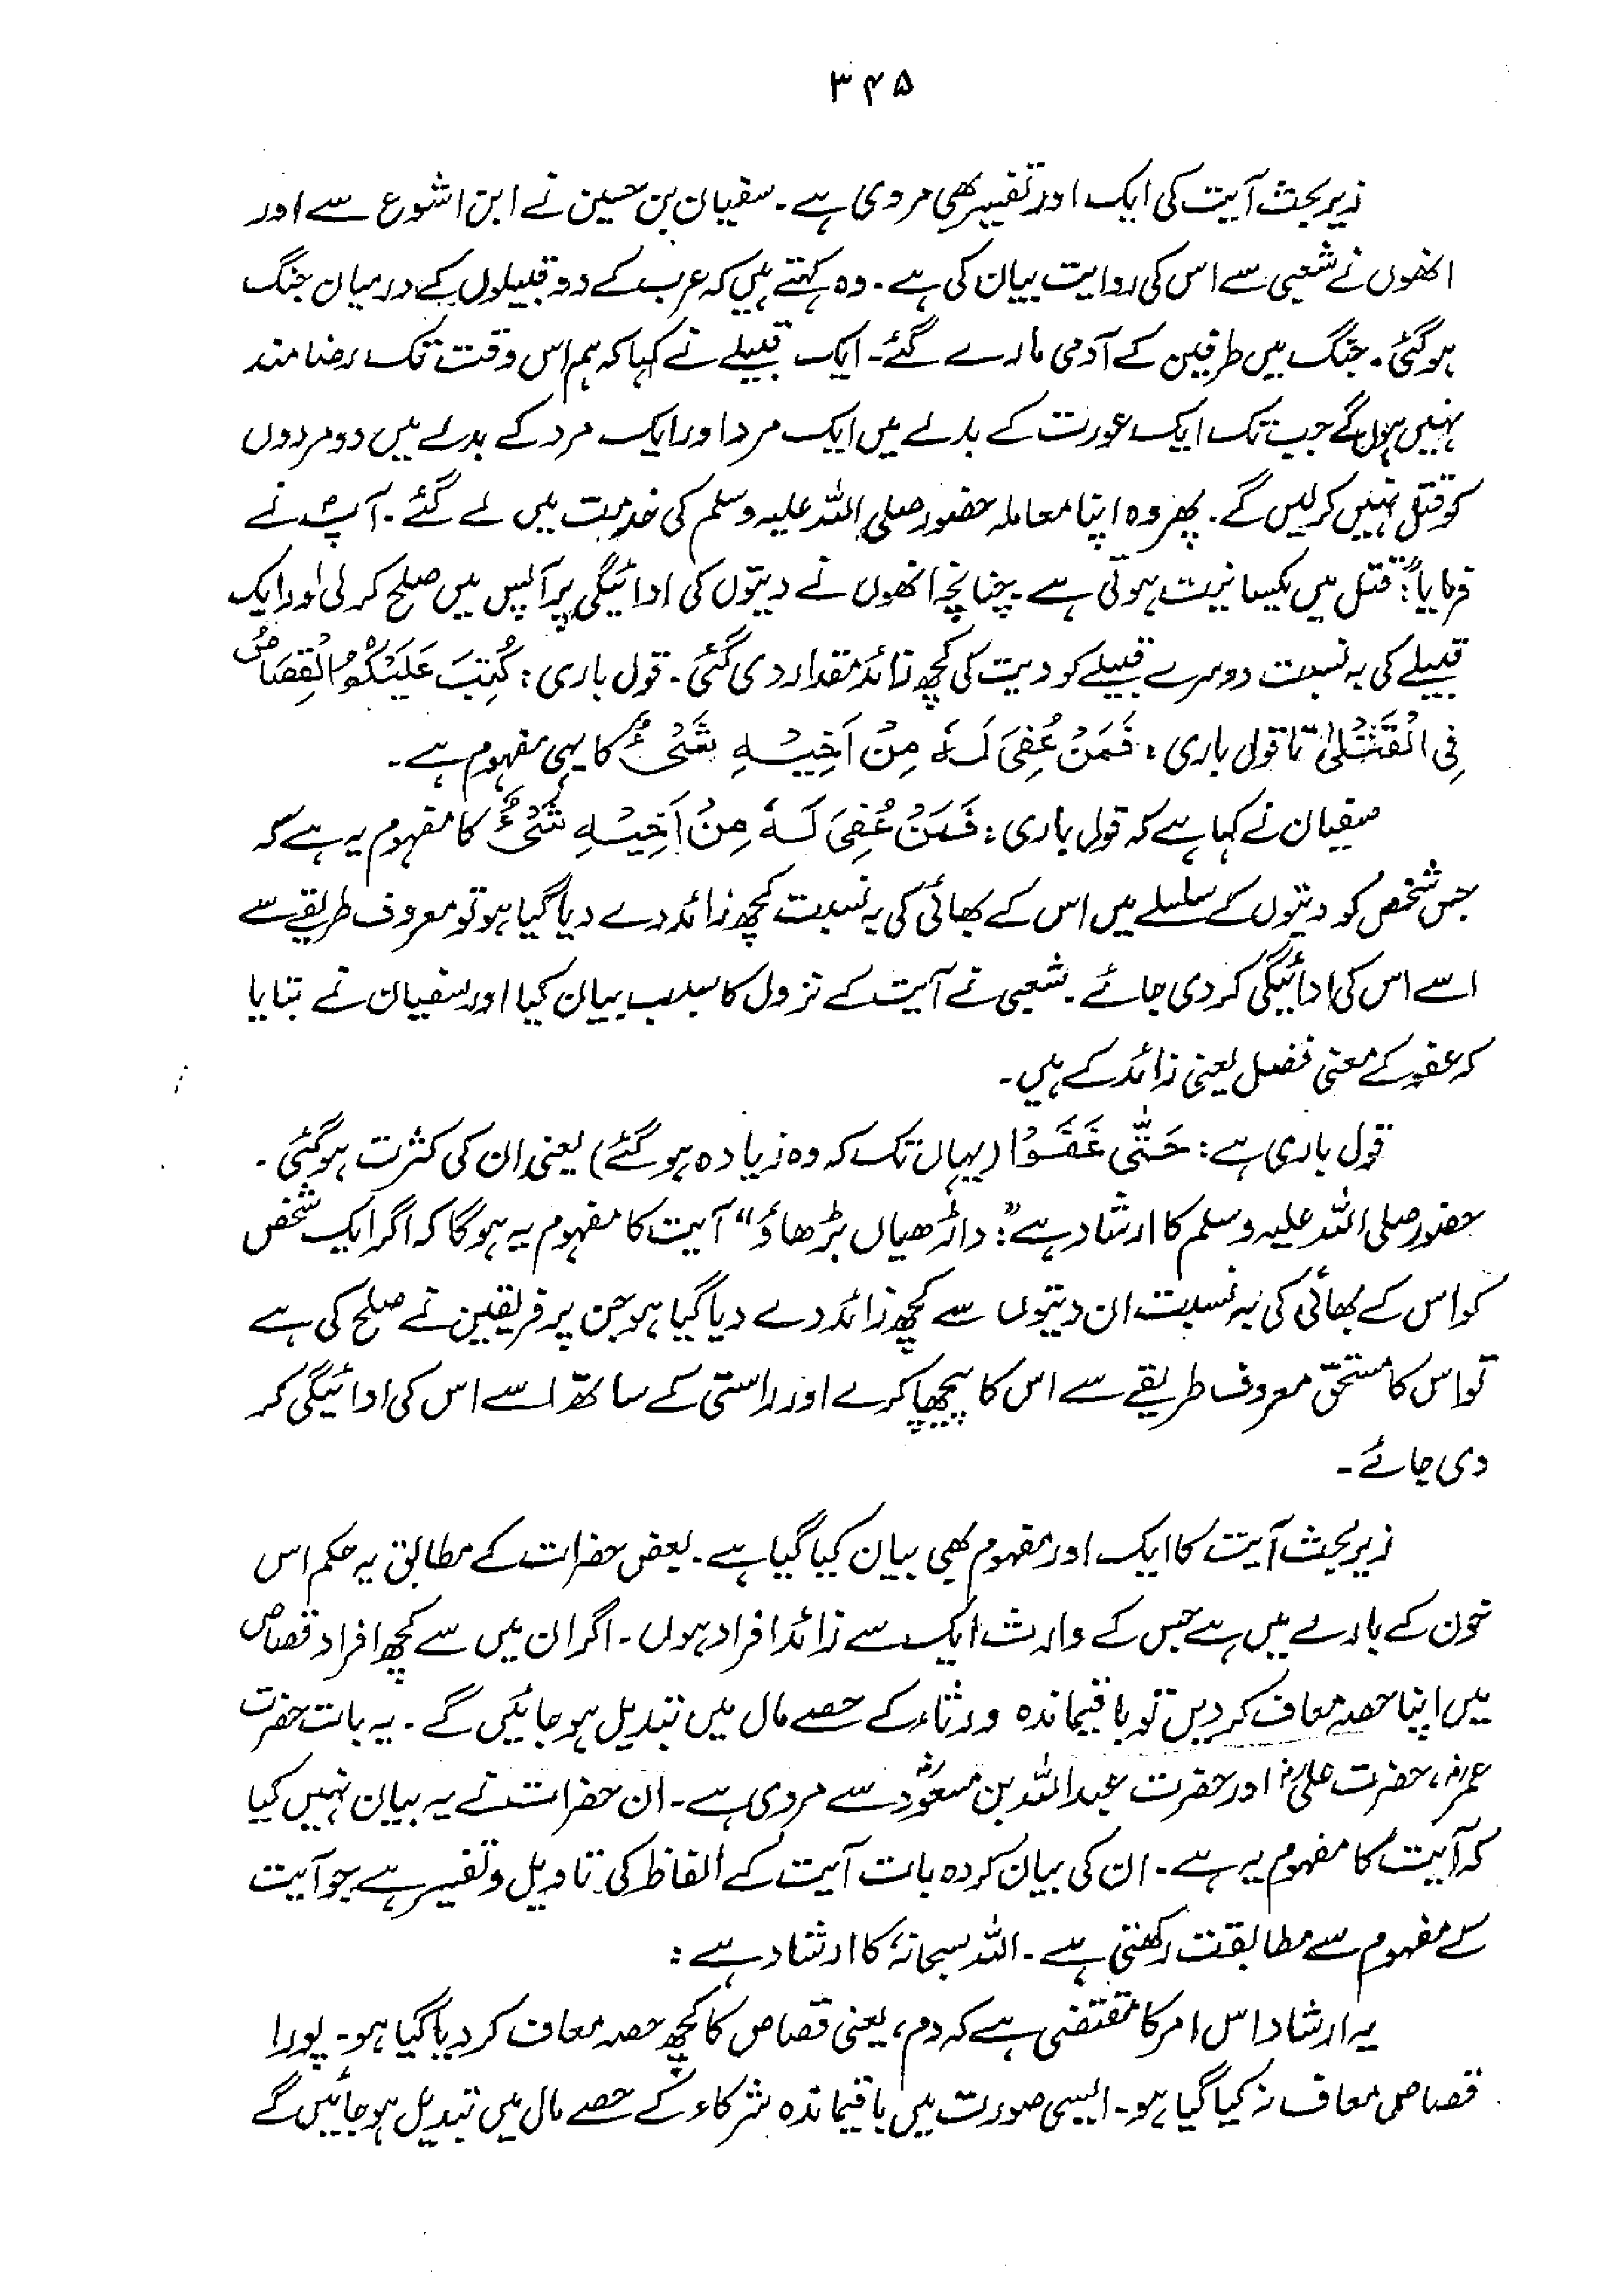 ۳۴۵
زیر بحث آیت کی ایک اور تفسیر بھی مروی ہے۔ سفیان بن حسین نے ابن اشوع سے اور
انھوں نے شعبی سے اس کی روایت بیان کی ہے۔ وہ کہتے ہیں کہ عرب کے دو قبیلوں کے درمیان جنگ
ہوگئی۔ جنگ میں طرفین کے آدمی مارے گئے۔ ایک قبیلے نے کہا کہ ہم اس وقت تک رضامند
نہیں ہوں گے جب تک ایک عورت کے بدلے میں ایک مرد اور ایک مرد کے بدلے میں دو مردوں
کو قتل نہیں کرلیں گے۔ پھر وہ اپنا معاملہ حضور صلی اللہ علیہ وسلم کی خدمت میں لے گئے۔ آپؐ نے
فرمایا: "قتل میں یکسانیت ہوتی ہے۔ چنانچہ انھوں نے دیتوں کی ادائیگی پر آپس میں صلح کرلی اور ایک
قبیلے کی بہ نسبت دوسرے قبیلے کو دیت کی کچھ زائد مقدار دی گئی۔ قول باری: كُتِبَ عَلَيْكُمُ الْقِصَاصُ
فِی الْقَتْلٰی تا قول باری: فَمَنْ عُفِیَ لَهٗ مِنْ اَخِیْهِ شَیْءٌ کا یہی مفہوم ہے۔
سفیان نے کہا ہے کہ قول باری: فَمَنْ عُفِیَ لَهٗ مِنْ اَخِیْهِ شَیْءٌ کا مفہوم یہ ہے کہ
جس شخص کو دیتوں کے سلسلے میں اس کے بھائی کی بہ نسبت کچھ زائد دے دیا گیا ہو تو معروف طریقے سے
اسے اس کی ادائیگی کردی جائے۔ شعبی نے آیت کے نزول کا سبب بیان کیا اور سفیان نے بتایا
کہ عفو کے معنی فضل یعنی زائد کے ہیں۔
قول باری ہے: حَتّٰی عَفَوْا (یہاں تک کہ وہ زیادہ ہوگئے) یعنی ان کی کثرت ہوگئی۔
حضور صلی اللہ علیہ وسلم کا ارشاد ہے: "داڑھیاں بڑھاؤ" آیت کا مفہوم یہ ہوگا کہ اگر ایک شخص
کو اس کے بھائی کی بہ نسبت ان دیتوں سے کچھ زائد دے دیا گیا ہو جن پر فریقین نے صلح کی ہے
تو اس کا مستحق معروف طریقے سے اس کا پیچھا کرے اور راستی کے ساتھ اسے اس کی ادائیگی کر
دی جائے۔
زیر بحث آیت کا ایک اور مفہوم بھی بیان کیا گیا ہے۔ بعض حضرات کے مطابق یہ حکم اس
خون کے بارے میں ہے جس کے وارث ایک سے زائد افراد ہوں۔ اگر ان میں سے کچھ افراد قصاص
میں اپنا حصہ معاف کردیں تو باقیماندہ ورثاء کے حصے مال میں تبدیل ہوجائیں گے۔ یہ بات حضرت
عمرؓ، حضرت علیؓ اور حضرت عبداللہ بن مسعودؓ سے مروی ہے۔ ان حضرات نے یہ بیان نہیں کیا
کہ آیت کا مفہوم یہ ہے۔ ان کی بیان کردہ بات آیت کے الفاظ کی تاویل و تفسیر ہے جو آیت
کے مفہوم سے مطابقت رکھتی ہے۔ اللہ سبحانہٗ کا ارشاد ہے:
یہ ارشاد اس امر کا مقتضی ہے کہ دم، یعنی قصاص کا کچھ حصہ معاف کردیا گیا ہو۔ پورا
قصاص معاف نہ کیا گیا ہو۔ ایسی صورت میں باقیماندہ شرکاء کے حصے مال میں تبدیل ہوجائیں گے